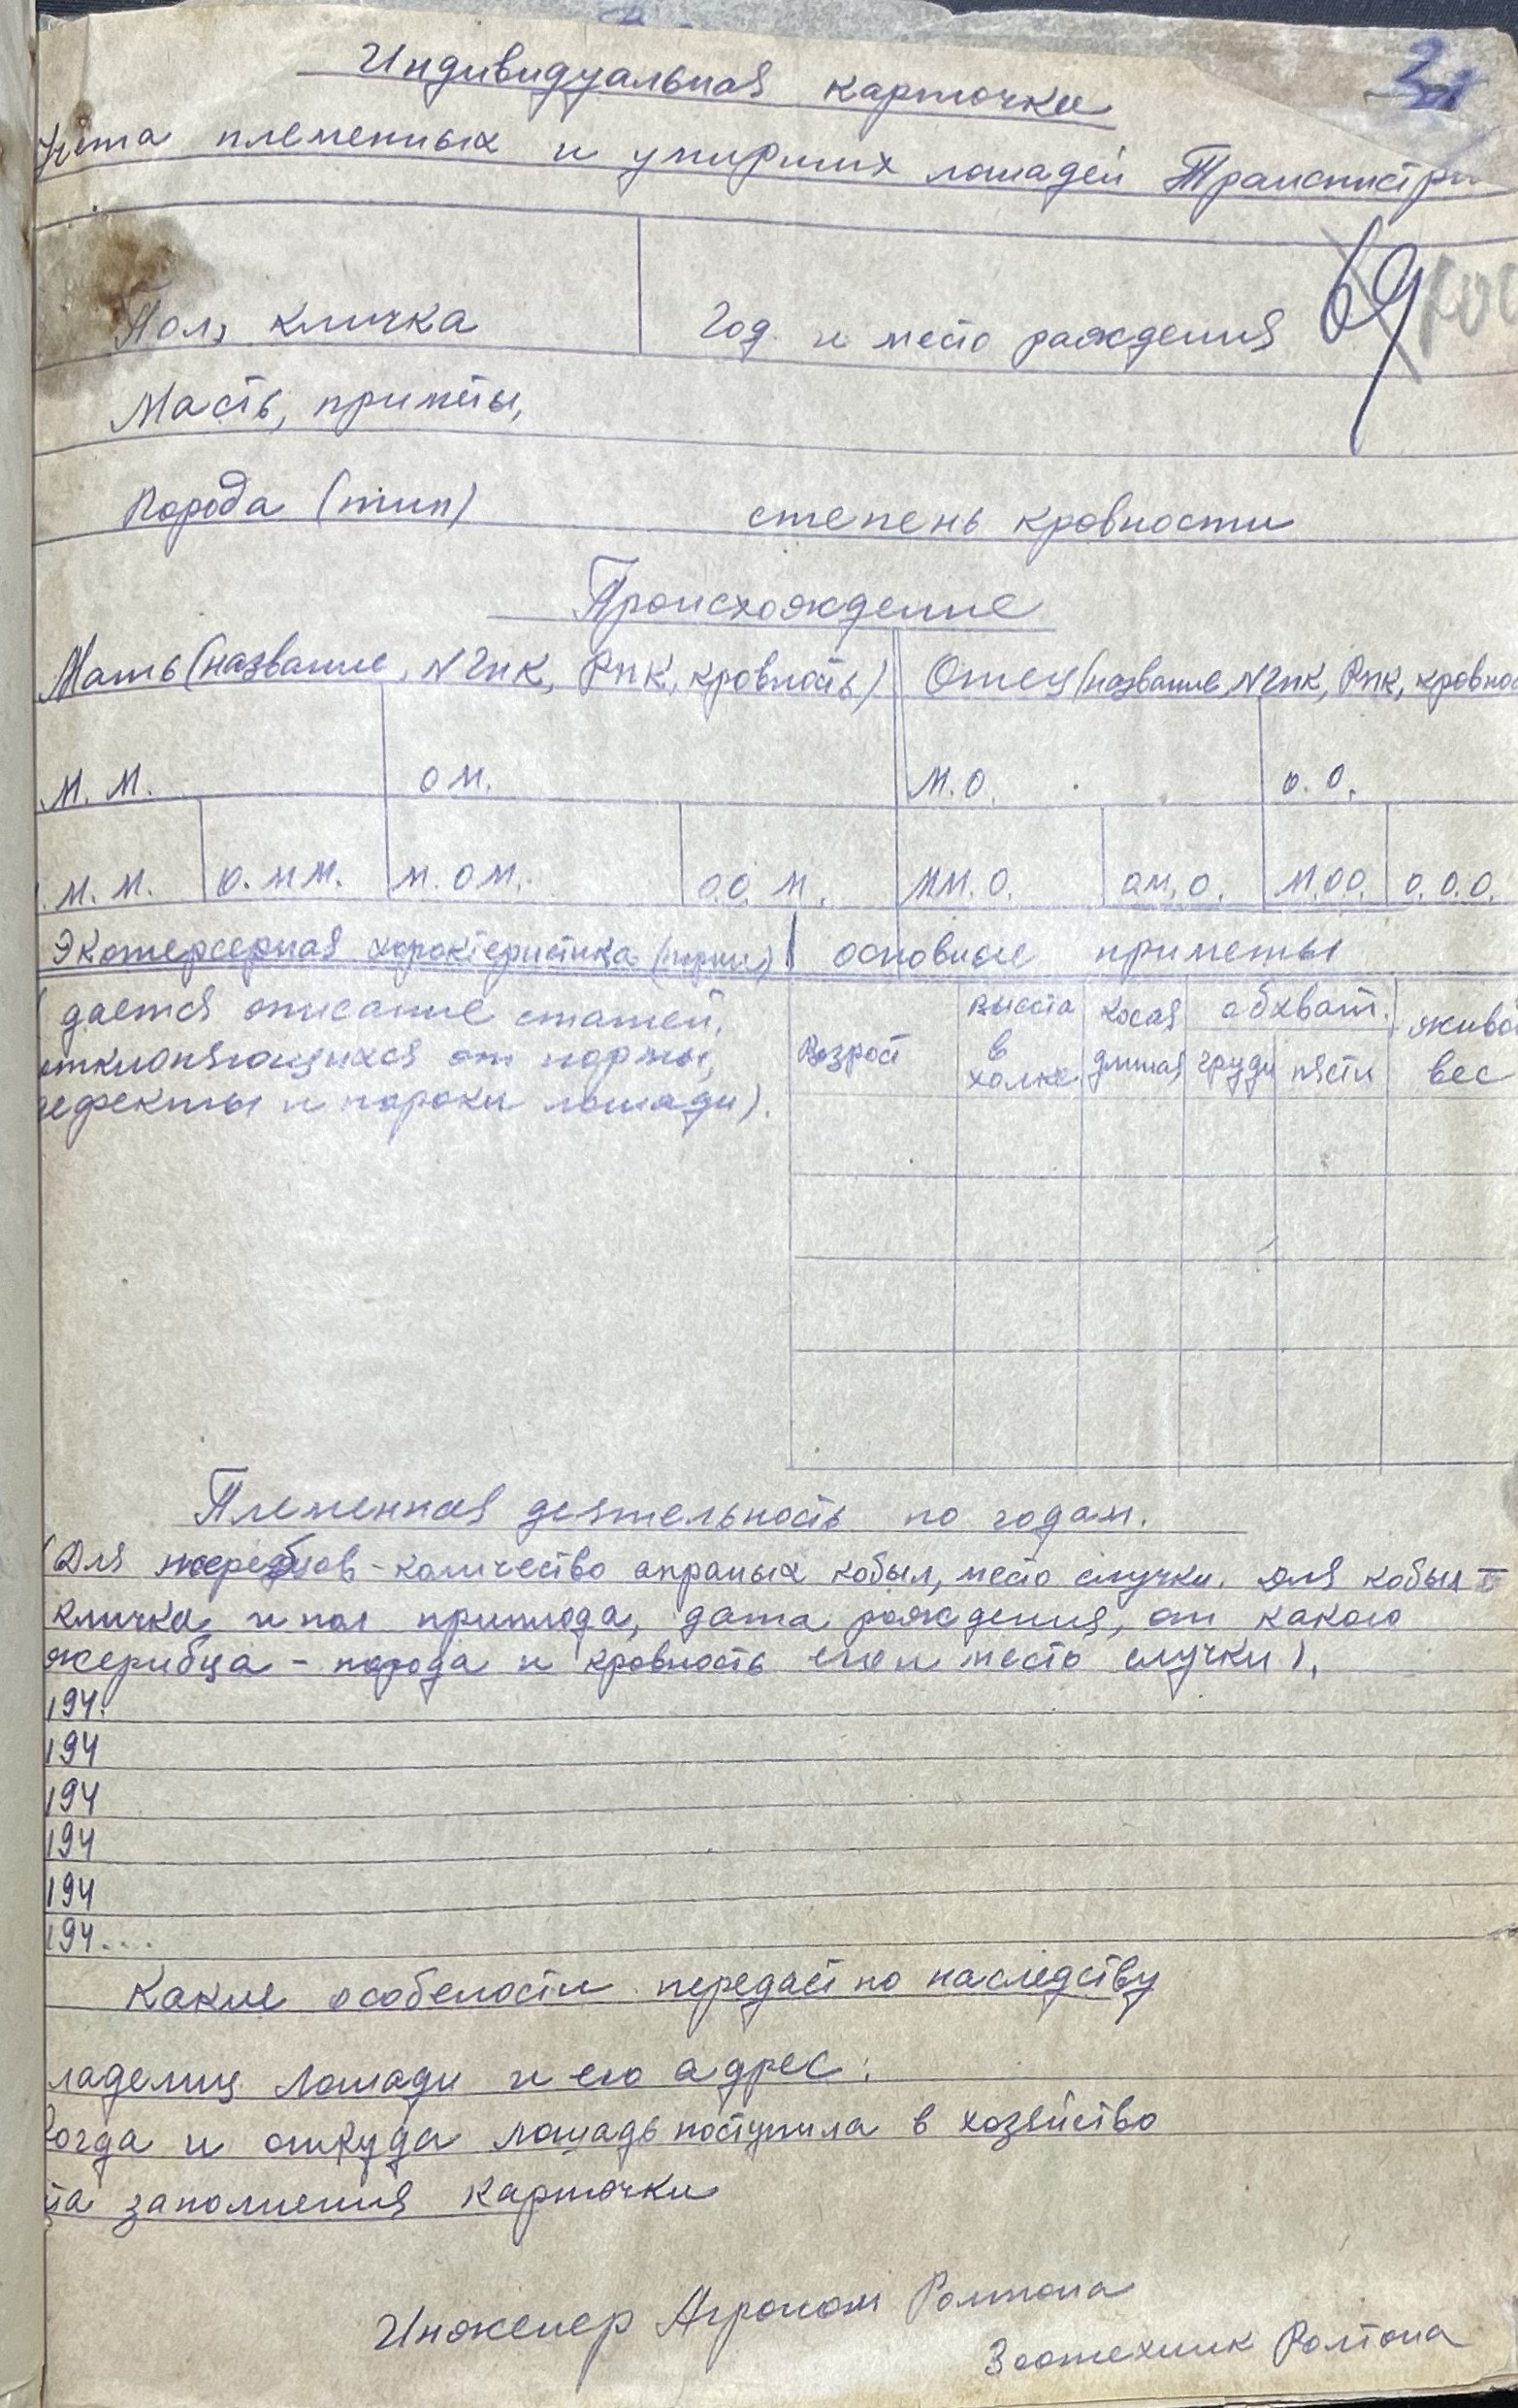 Индивидуальная карточка
учета племенных и умирших лошадей Транснистри
69
Пол, кличка Год и место раждения
Масть, приметы,
Порода (тип) степень кровности
Происхождение
Мать (название, N гпк, Рпк, кровность) Отец (название, N гпк, Рпк, кровнос
М. М. О М. М. О. О. О.
М. М. О. М М. М. О М. О.О. М. ММ. О. ОМ. О. М. О О. О. О. О.
Экстерьерная характеристика основные приметы
(дается описание статей,
отклоняющихся от нормы,
дефекты и пороки лошади).
Возрост высота в холке косая длиная обхват груди пясти живой вес
Племенная деятельность по годам.
(Для жеребцов - количество кобыл, место случки. Для кобыл -
кличка и пол приплода, дата рождения, от какого
жерибца - порода и кровность место случки).
194.
194
194
194
194
194...
Какие особености передает по наследству
ладелиц лошади и его адрес:
Когда и откуда лошадь поступила в хозяйство
та заполнения карточки
Инженер Агроном Ромтопа
Зоотехник Ромтопа